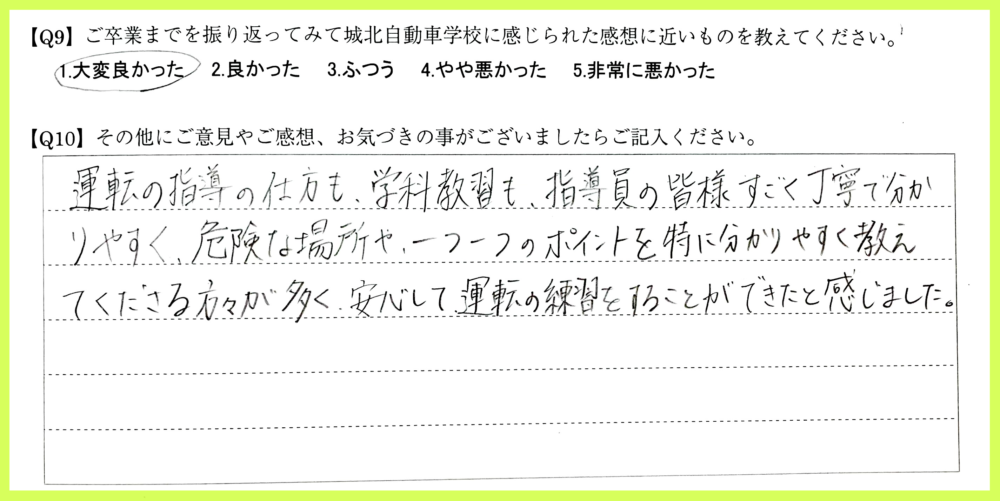 【Q9】ご卒業までを振り返ってみて城北自動車学校に感じられた感想に近いものを教えてください。
1.大変良かった 2.良かった 3.ふつう 4.やや悪かった 5.非常に悪かった
【Q10】その他にご意見やご感想、お気づきの事がございましたらご記入ください。
運転の指導の仕方も、学科教習も、指導員の皆様すごく丁寧で分か
りやすく、危険な場所や、一つ一つのポイントを特に分かりやすく教え
てくださる方々が多く、安心して運転の練習をすることができたと感じました。